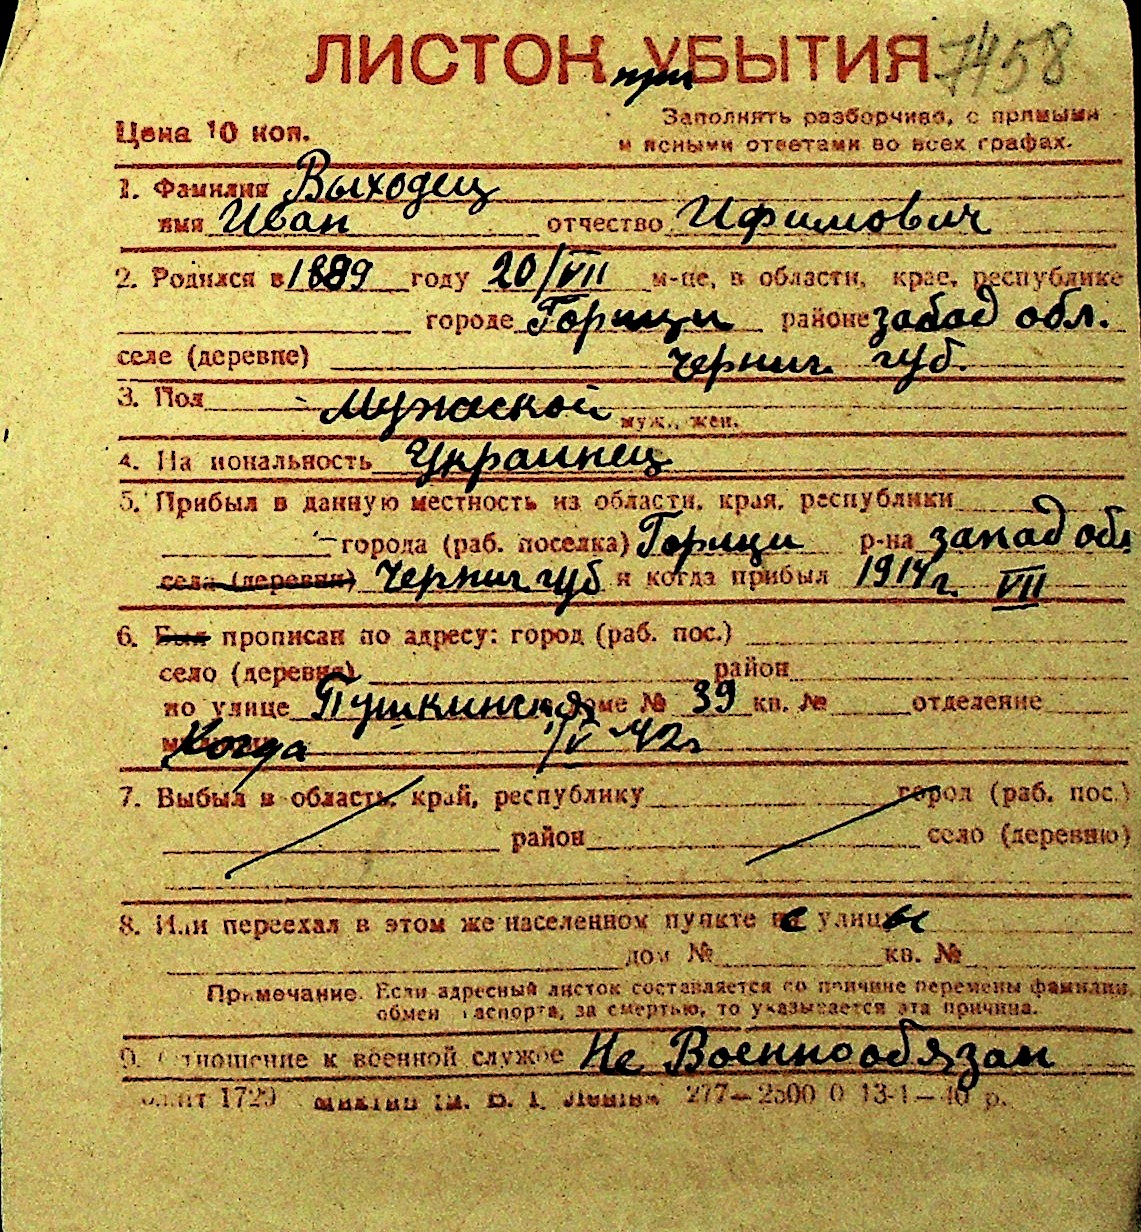 ЛИСТОК УБЫТИЯ 7458
при
Цена 10 коп.
Заполнять разборчиво, с прямыми
и ясными ответами во всех графах.
1. Фамилия Выходец
имя Иван отчество Ифимович
2. Родился в 1889 году 20/VII м-це, в области, крае, республике
городе Горищи районе забад обл.
селе (деревне) Чернич. губ.
3. Пол Мужской
муж., жен.
4. На иональность Украинец
5. Прибыл в данную местность из области, края, республики
города (раб. поселка) Горищи р-на запад обл
села (деревни) Чернич губ и когда прибыл 1914 г. VII
6. Был прописан по адресу: город (раб. пос.)
село (деревня) район
по улице Пушкинская доме № 39 кв. № отделение
Когда /V 42г
7. Выбыл в область, край, республику город (раб. пос.)
район село (деревню)
8. Или переехал в этом же населенном пункте с улицы
дом № кв. №
Примечание. Если адресный листок составляется по причине перемены фамилии,
обмен паспорта, за смертью, то указывается эта причина.
9. Отношение к военной службе Не Военнообязан
1729 им. В. И. Ленина 277—2500 0 13-1—40 р.